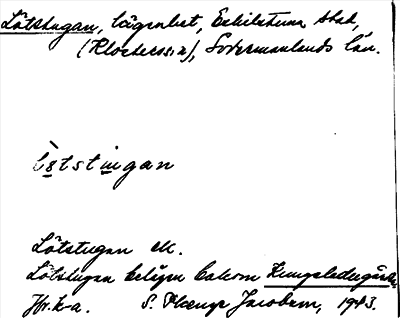 Lötstugan, lägenhet, Eskilstuna stad,
(Klosters s:n), Södermanlands län.
Lötstugan
Lötstugan etc.
Lötstugan belägen bakom Kungsladugård
Hr. h-a. S. Jacobson, 1943.